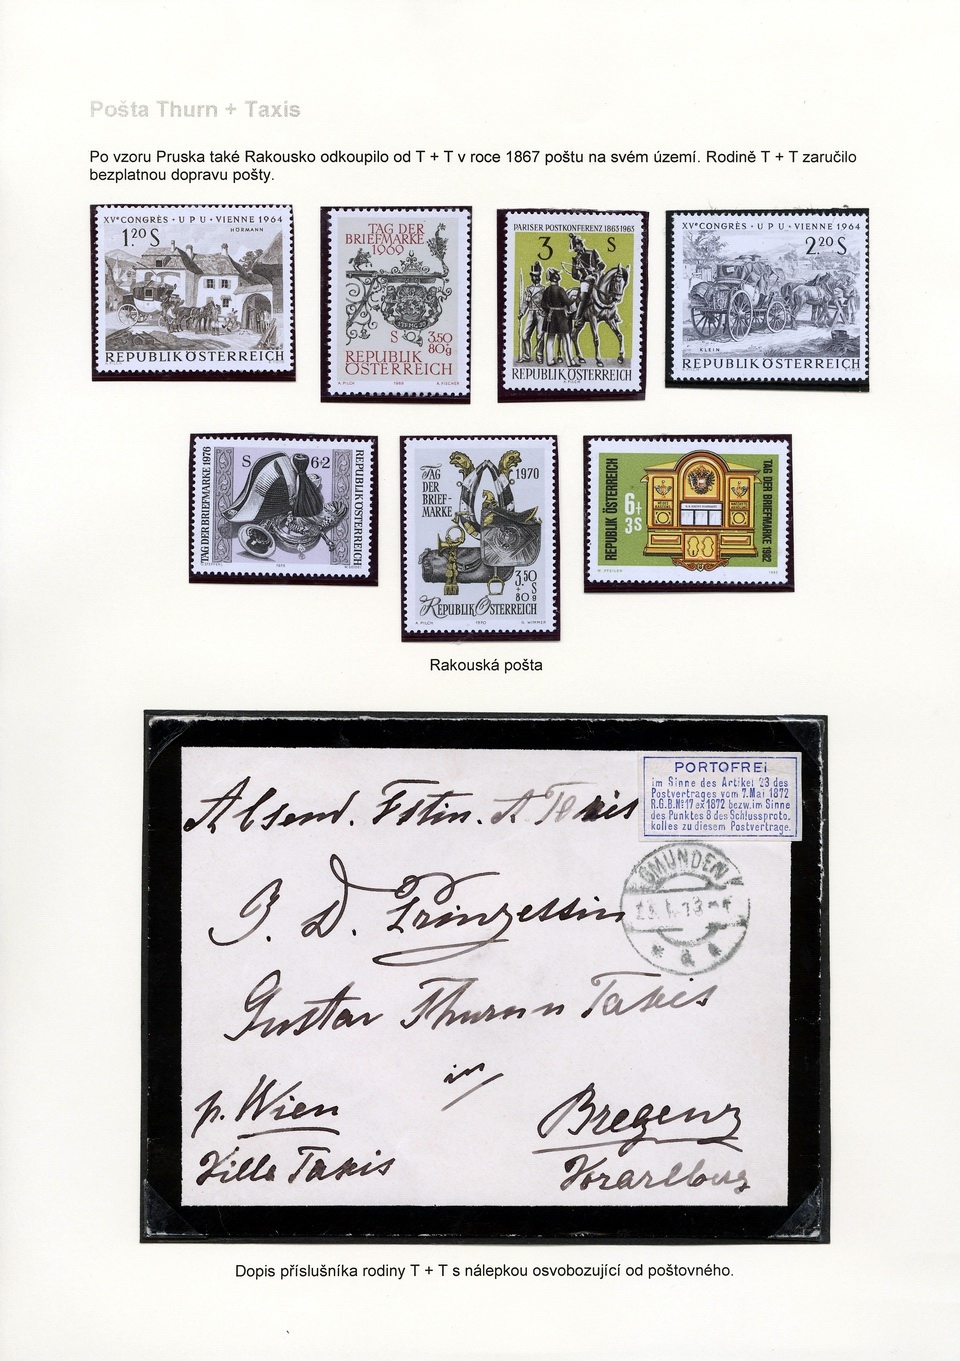 Pošta Thurn + Taxis
Po vzoru Pruska také Rakousko odkoupilo od T + T v roce 1867 poštu na svém území. Rodině T + T zaručilo
bezplatnou dopravu pošty.
XVe CONGRÈS · U P U · VIENNE 1964
1.20 S
HÖRMANN
REPUBLIK ÖSTERREICH
TAG DER
BRIEFMARKE
1969
S 3.50
80g
REPUBLIK
ÖSTERREICH
A. PILCH 1969 A. FISCHER
PARISER POSTKONFERENZ 1863 1963
3 S
REPUBLIK ÖSTERREICH
XVe CONGRÈS · U P U · VIENNE 1964
2.20 S
KLEIN
REPUBLIK ÖSTERREICH
TAG DER BRIEFMARKE 1976
S 6+2
REPUBLIK ÖSTERREICH
1976
TAG
DER
BRIEF-
MARKE
1970
3.50
S
+
80 g
REPUBLIK ÖSTERREICH
A. PILCH 1970
REPUBLIK ÖSTERREICH
6+
3S
TAG DER BRIEFMARKE 1982
1982
Rakouská pošta
PORTOFREi
im Sinne des Artikel 23 des
Postvertrages vom 7. Mai 1872
R.G.B. No 17 ex 1872 bezw. im Sinne
des Punktes 8 des Schlussproto-
kolles zu diesem Postvertrage.
Absend. Fstin. A Taxis
GMUNDEN
* a *
J. D. Prinzessin
Gustav Thurn Taxis
in
p. Wien
Bregenz
Villa Taxis
Vorarlberg
Dopis příslušníka rodiny T + T s nálepkou osvobozující od poštovného.